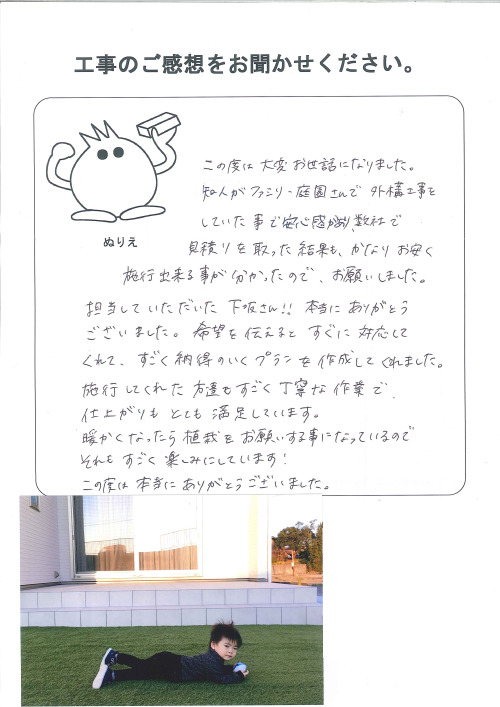 工事のご感想をお聞かせください。
この度は大変お世話になりました。
知人がファミリー庭園さんで外構工事を
していた事で安心感があり、数社で
見積りを取った結果も、かなりお安く
ぬりえ
施行出来る事が分かったので、お願いしました。
担当していただいた下坂さん!!本当にありがとう
ございました。希望を伝えるとすぐに対応して
くれて、すごく納得のいくプランを作成してくれました。
施行してくれた方達もすごく丁寧な作業で、
仕上がりもとても満足しています。
暖かくなったら植栽をお願いする事になっているので
それもすごく楽しみにしています!
この度は本当にありがとうございました。